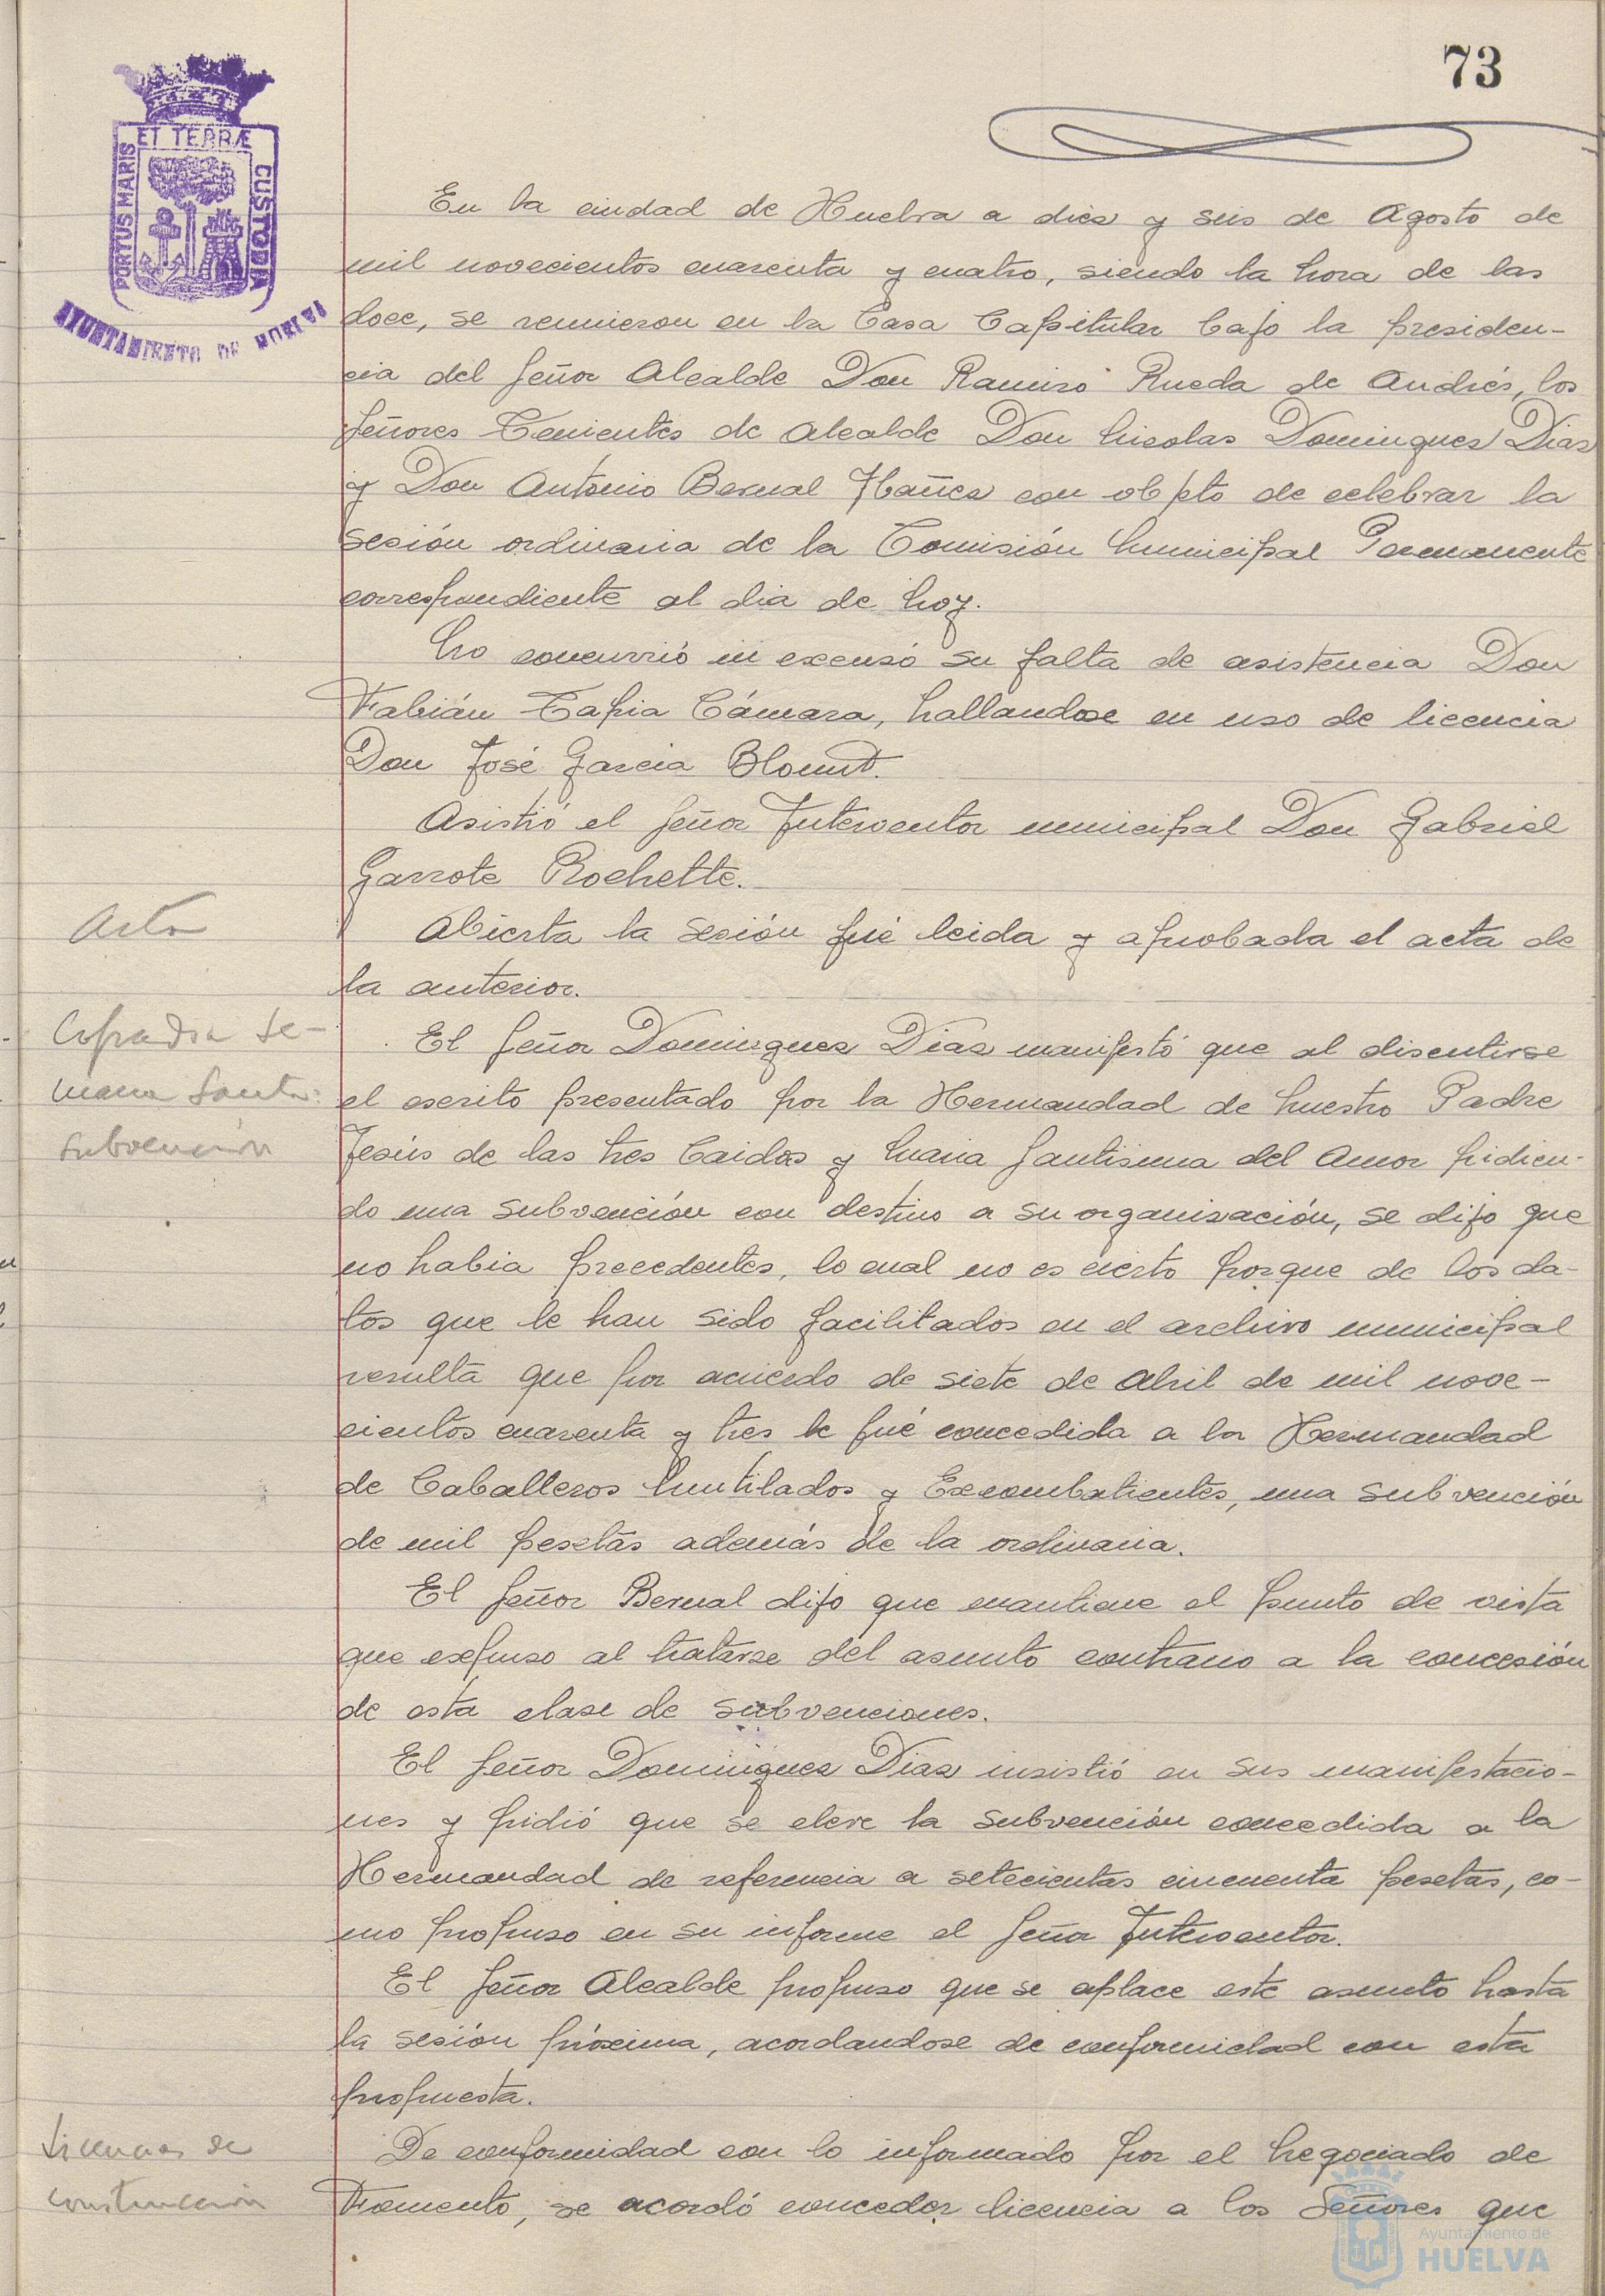 73
PORTUS MARIS ET TERRÆ CUSTODIA
AYUNTAMIENTO DE HUELVA
En la ciudad de Huelva a diez y seis de Agosto de
mil novecientos cuarenta y cuatro, siendo la hora de las
doce, se reunieron en la Casa Capitular bajo la presiden-
cia del Señor Alcalde Don Ramiro Rueda de Andrés, los
Señores Tenientes de Alcalde Don Nicolas Dominguez Diaz
y Don Antonio Bernal Ybañez con objeto de celebrar la
sesión ordinaria de la Comisión Municipal Permanente
correspondiente al dia de hoy.
No concurrió ni excusó su falta de asistencia Don
Fabián Tapia Cámara, hallandose en uso de licencia
Don José Garcia Blount.
Asistió el Señor Interventor municipal Don Gabriel
Garrote Rochette.
Acta
Abierta la sesión fué leida y aprobada el acta de
la anterior.
Cofradia Se-
mana Santa:
Subvención
El Señor Dominguez Diaz manifestó que al discutirse
el escrito presentado por la Hermandad de Nuestro Padre
Jesús de las tres Caidas y Maria Santisima del Amor pidien-
do una subvención con destino a su organización, se dijo que
no habia precedentes, lo cual no es cierto porque de los da-
tos que le han sido facilitados en el archivo municipal
resulta que por acuerdo de siete de Abril de mil nove-
cientos cuarenta y tres le fué concedida a la Hermandad
de Caballeros Mutilados y Excombatientes, una subvención
de mil pesetas además de la ordinaria.
El Señor Bernal dijo que mantiene el punto de vista
que expuso al tratarse del asunto contrario a la concesión
de esta clase de subvenciones.
El Señor Dominguez Diaz insistió en sus manifestacio-
nes y pidió que se eleve la subvención concedida a la
Hermandad de referencia a setecientas cincuenta pesetas, co-
mo propuso en su informe el Señor Interventor.
El Señor Alcalde propuso que se aplace este asunto hasta
la sesión próxima, acordandose de conformidad con esta
propuesta.
Licencias de
construcción
De conformidad con lo informado por el Negociado de
Fomento, se acordó conceder licencia a los Señores que
Ayuntamiento de
HUELVA